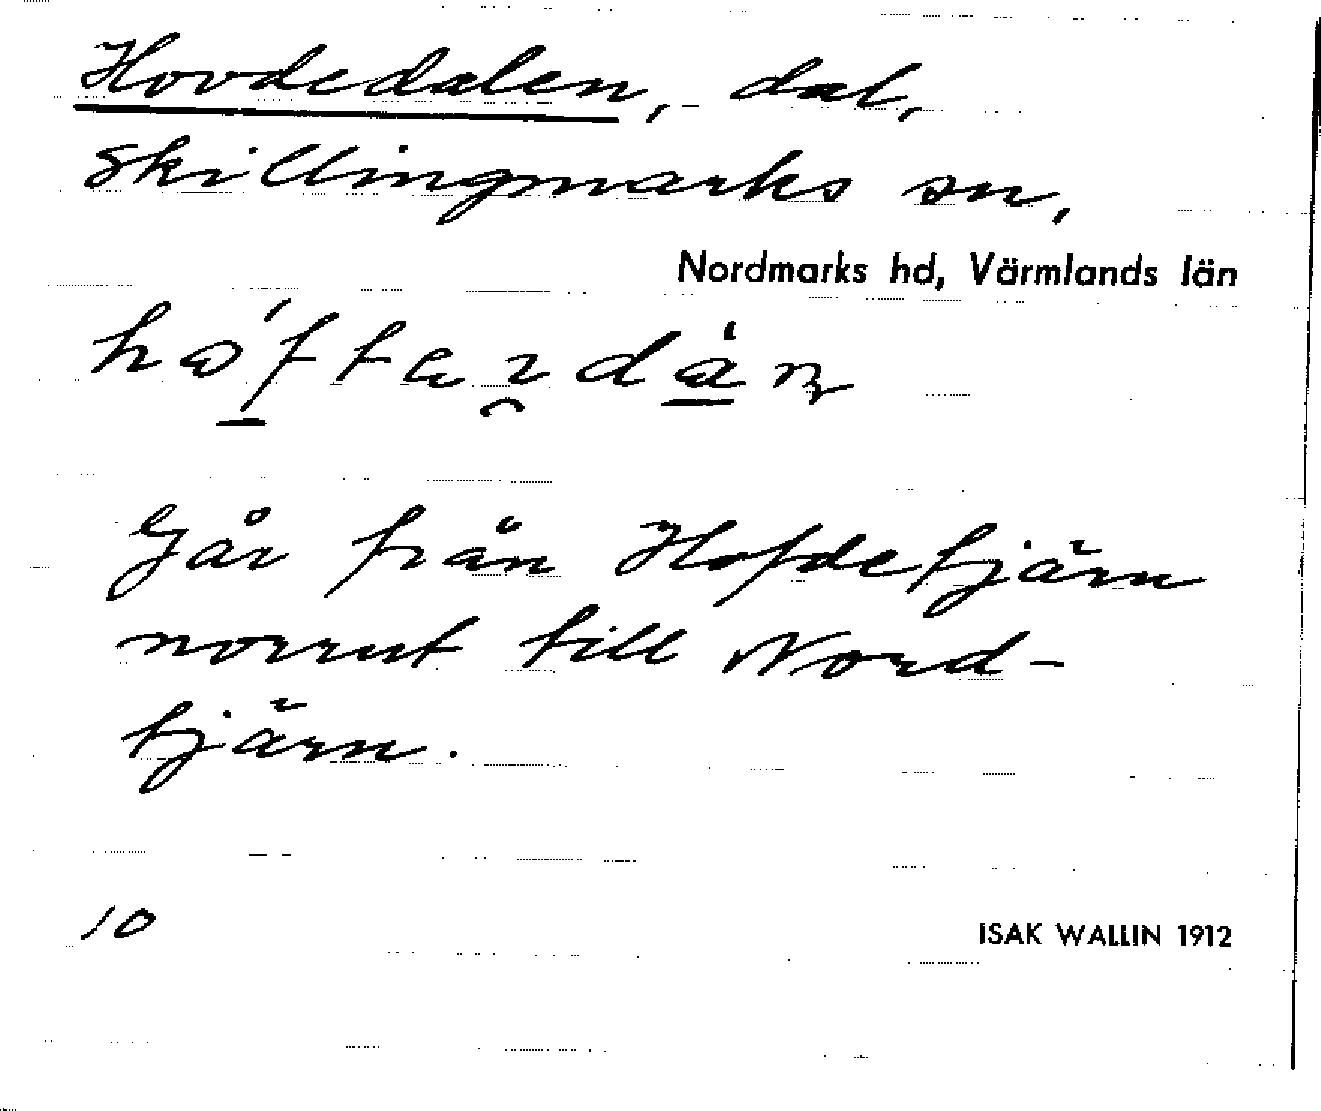 Hovdedalen, dal,
Skillingmarks sn,
Nordmarks hd, Värmlands län
Går från Hofdetjärn
norrut till Nord-
tjärn.
10
ISAK WALLIN 1912